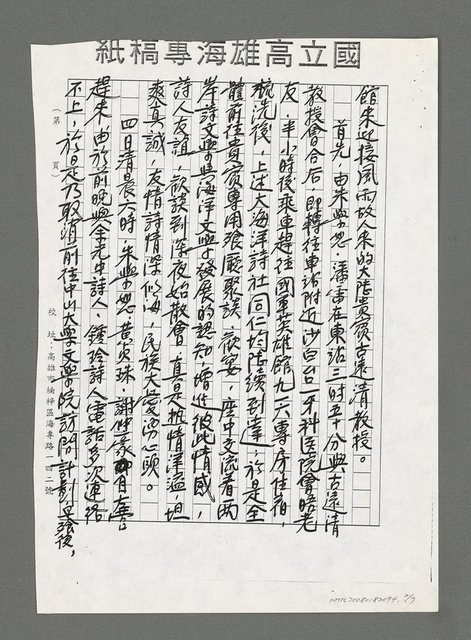 國立高雄海專稿紙
館來迎接風雨故人來的大陸貴賓古遠清教授。
首先,由朱學恕、潘雷在東站三時五十分與古遠清
教授會合后,即轉往車站附近沙白台一牙科医院會晤老
友,半小時後乘車趕往國軍英雄館九一六專房住宿,
梳洗後,上述大海洋詩社同仁均陸續到達,於是全
體前往貴賓專用飱廳聚談、歡宴,座中交流着两
岸詩文學與海洋文學發展的認知,增進彼此情感,
詩人友誼,歡談到深夜始散會,真是旭情洋溢,坦
爽真誠,友情詩情深似海,民族大愛湧心頭。
四日清晨六時,朱學恕、黃貝珠、謝佳
趕來,由於前晚與余光中詩人、鍾玲詩人電話多次連絡
不上,於是乃取消前往中山大學文學院訪問計劃,早飱後,
(第 頁)
校址:高雄市楠梓區海專路一四二號
NMTL20080182094. 2/7